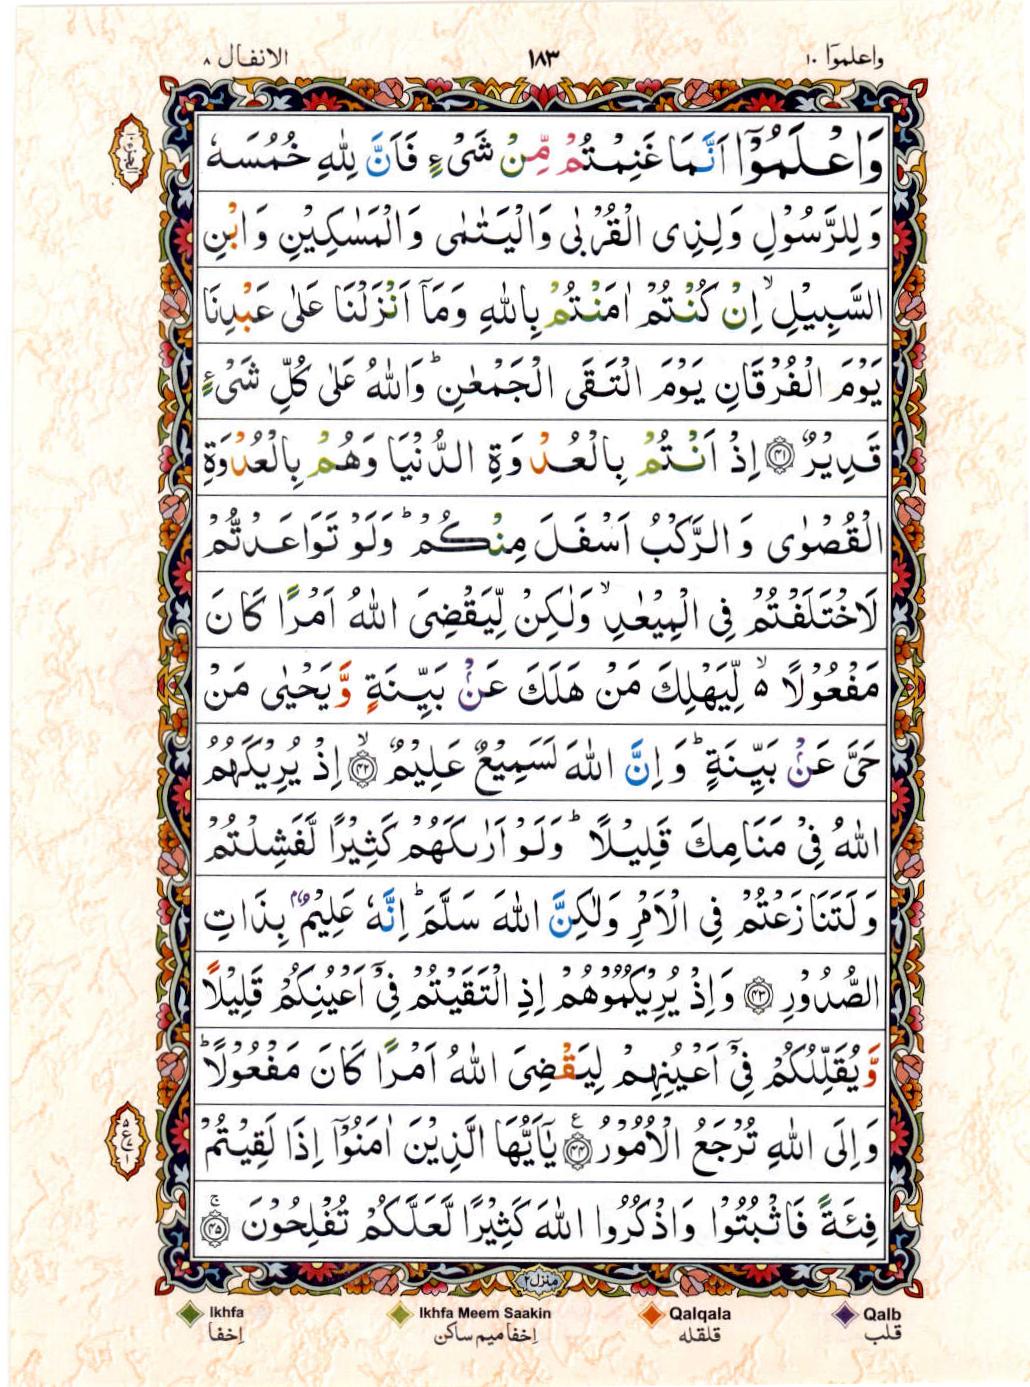 الانفال ٨
١٨٣
واعلموٓا ١٠
وَاعْلَمُوْٓا اَنَّمَا غَنِمْتُمْ مِّنْ شَیْءٍ فَاَنَّ لِلّٰهِ خُمُسَهٗ
وَلِلرَّسُوْلِ وَلِذِی الْقُرْبٰی وَالْیَتٰمٰی وَالْمَسٰكِیْنِ وَابْنِ
السَّبِیْلِ ۙ اِنْ كُنْتُمْ اٰمَنْتُمْ بِاللّٰهِ وَمَاۤ اَنْزَلْنَا عَلٰی عَبْدِنَا
یَوْمَ الْفُرْقَانِ یَوْمَ الْتَقَی الْجَمْعٰنِ ؕ وَاللّٰهُ عَلٰی كُلِّ شَیْءٍ
قَدِیْرٌ ﴿۴۱﴾ اِذْ اَنْتُمْ بِالْعُدْوَةِ الدُّنْیَا وَهُمْ بِالْعُدْوَةِ
الْقُصْوٰی وَالرَّكْبُ اَسْفَلَ مِنْكُمْ ؕ وَلَوْ تَوَاعَدْتُّمْ
لَاخْتَلَفْتُمْ فِی الْمِیْعٰدِ ۙ وَلٰكِنْ لِّیَقْضِیَ اللّٰهُ اَمْرًا كَانَ
مَفْعُوْلًا ۙ۵ لِّیَهْلِكَ مَنْ هَلَكَ عَنْۢ بَیِّنَةٍ وَّیَحْیٰی مَنْ
حَیَّ عَنْۢ بَیِّنَةٍ ؕ وَاِنَّ اللّٰهَ لَسَمِیْعٌ عَلِیْمٌ ﴿ۙ۴۲﴾ اِذْ یُرِیْكَهُمُ
اللّٰهُ فِیْ مَنَامِكَ قَلِیْلًا ؕ وَلَوْ اَرٰىكَهُمْ كَثِیْرًا لَّفَشِلْتُمْ
وَلَتَنَازَعْتُمْ فِی الْاَمْرِ وَلٰكِنَّ اللّٰهَ سَلَّمَ ؕ اِنَّهٗ عَلِیْمٌۢ بِذَاتِ
الصُّدُوْرِ ﴿۴۳﴾ وَاِذْ یُرِیْكُمُوْهُمْ اِذِ الْتَقَیْتُمْ فِیْۤ اَعْیُنِكُمْ قَلِیْلًا
وَّیُقَلِّلُكُمْ فِیْۤ اَعْیُنِهِمْ لِیَقْضِیَ اللّٰهُ اَمْرًا كَانَ مَفْعُوْلًا ؕ
وَاِلَی اللّٰهِ تُرْجَعُ الْاُمُوْرُ ﴿۴۴﴾ ع یٰۤاَیُّهَا الَّذِیْنَ اٰمَنُوْۤا اِذَا لَقِیْتُمْ
فِئَةً فَاثْبُتُوْا وَاذْكُرُوا اللّٰهَ كَثِیْرًا لَّعَلَّكُمْ تُفْلِحُوْنَ ﴿ۚ۴۵﴾
منزل۲
Ikhfa
اِخفا
Ikhfa Meem Saakin
اِخفا میم ساکن
Qalqala
قلقله
Qalb
قلب